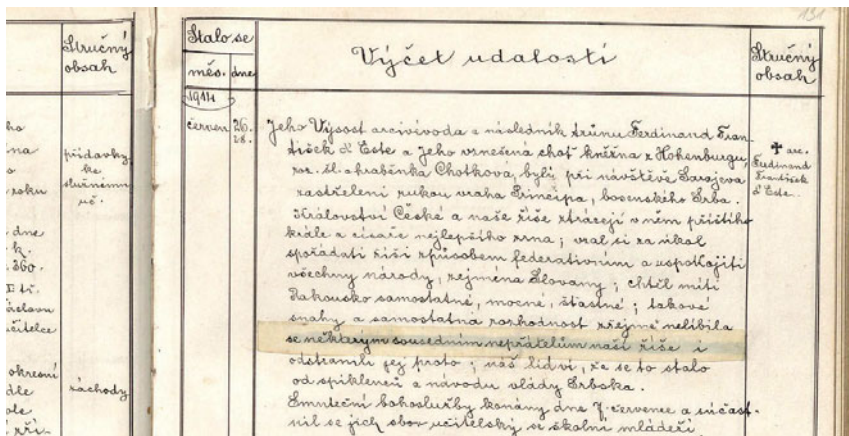 131
Stručný
obsah
přídavky
ke
služnému
uč.
záchody
ho
na
roku
dne
k.
360.
II tř.
učitelce
okresní
dle
ole
při-
Stalo se
měs. dne
Výčet událostí
Stručný
obsah
1914
červen 26.
28.
Jeho Výsost arcivévoda a následník trůnu Ferdinand Fran-
tišek d'Este a Jeho vznešená choť kněžna z Hohenburgu,
roz. hraběnka Chotková, byli při návštěvě Sarajeva
zastřeleni rukou vraha Principa, bosenského Srba.
Království České a naše říše ztrácejí v něm příštího
krále a císaře nejlepšího zrna; vzal si za úkol
spořádati říši způsobem federativním a uspokojiti
všechny národy, zejména Slovany; chtěl míti
Rakousko samostatné, mocné, šťastné; takové
snahy a samostatná rozhodnost zřejmě nelíbila
se některým sousedním nepřátelům naší říše i
odstranili jej proto; náš lid ví, že se to stalo
od spiklenců a návodu vlády Srbska.
Smuteční bohoslužby konány dne 7. července a súčast-
nil se jich sbor učitelský se školní mládeží.
✝ arc.
Ferdinand
František
d'Este.